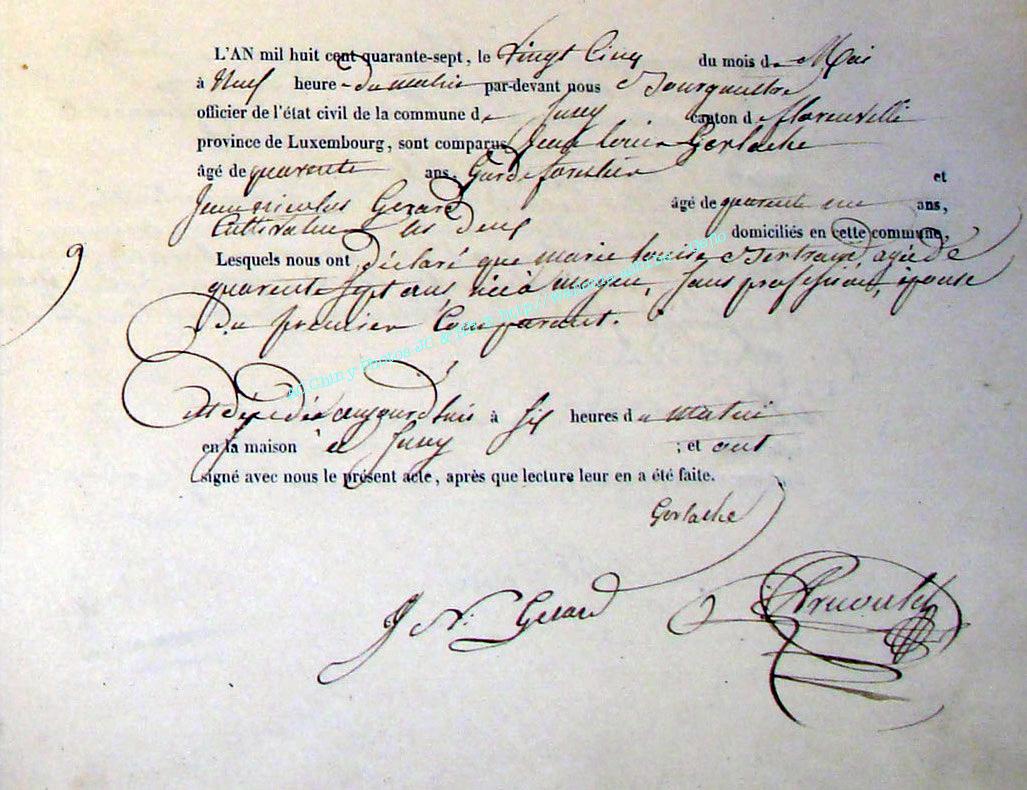 L'AN mil huit cent quarante-sept, le Vingt Cinq du mois de Mai
à Neuf heure du matin par-devant nous
officier de l'état civil de la commune de Jamoigne canton de florenville
province de Luxembourg, sont comparus Jean Louis Gerlache
âgé de quarente ans, Garde forestier et
Jean nicolas Gerard âgé de quarente un ans,
Cultivateur les deux domiciliés en cette commune,
9
Lesquels nous ont déclaré que marie louise Bertrand agée de
quarente sept ans née à moyen, sans profession, épouse
du premier Comparant.
est décédée aujourd'hui à six heures du matin
en sa maison à ; et ont
signé avec nous le présent acte, après que lecture leur en a été faite.
Gerlache
J N. Gerard